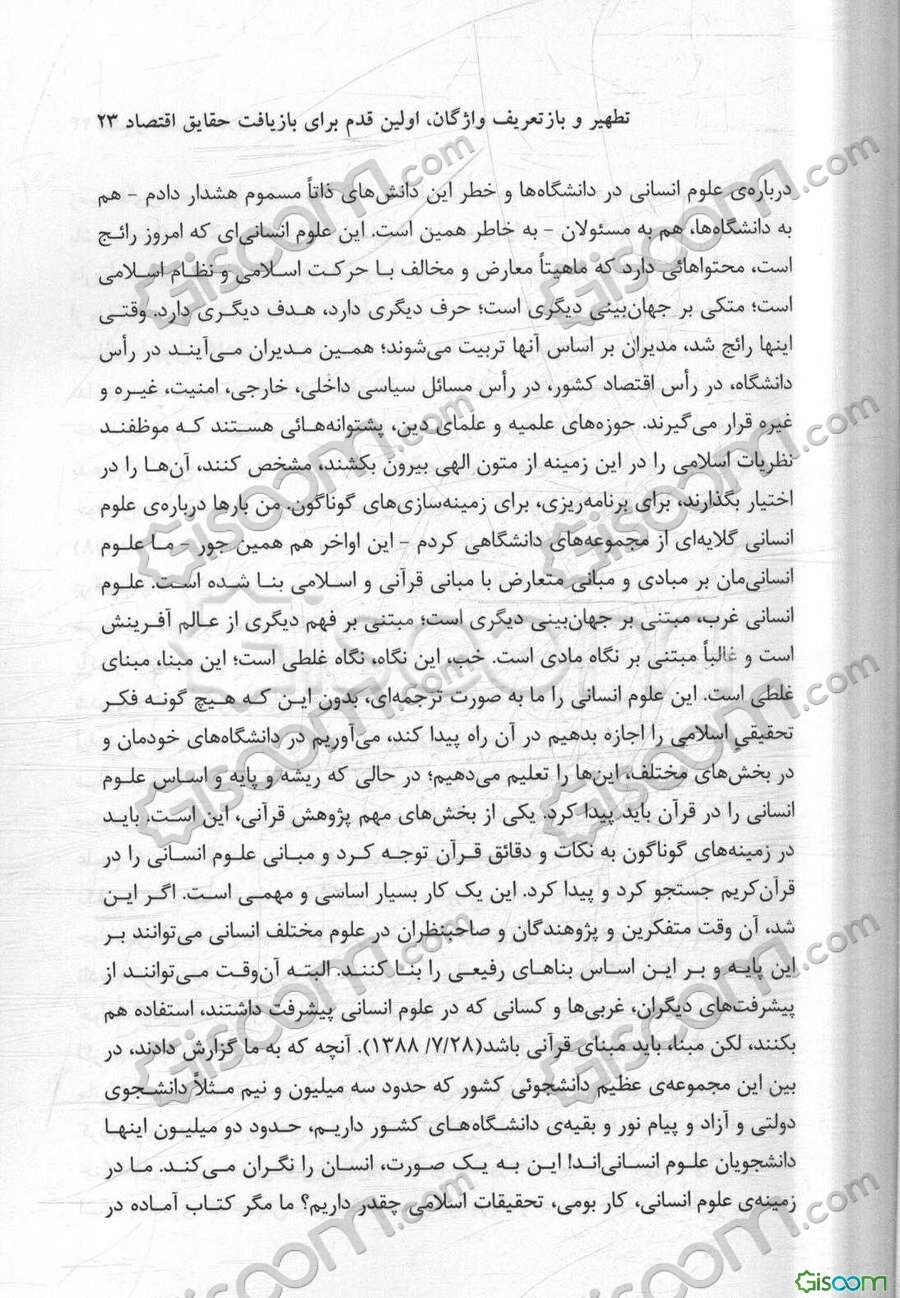 تطهیر و بازتعریف واژگان، اولین قدم برای بازیافت حقایق اقتصاد ۲۳
درباره‌ی علوم انسانی در دانشگاه‌ها و خطر این دانش‌های ذاتاً مسموم هشدار دادم - هم
به دانشگاه‌ها، هم به مسئولان - به خاطر همین است. این علوم انسانی‌ای که امروز رائج
است، محتواهائی دارد که ماهیتاً معارض و مخالف با حرکت اسلامی و نظام اسلامی
است؛ متکی بر جهان‌بینی دیگری است؛ حرف دیگری دارد، هدف دیگری دارد. وقتی
اینها رائج شد، مدیران بر اساس آنها تربیت می‌شوند؛ همین مدیران می‌آیند در رأس
دانشگاه، در رأس اقتصاد کشور، در رأس مسائل سیاسی داخلی، خارجی، امنیت، غیره و
غیره قرار می‌گیرند. حوزه‌های علمیه و علمای دین، پشتوانه‌هائی هستند که موظفند
نظریات اسلامی را در این زمینه از متون الهی بیرون بکشند، مشخص کنند، آن‌ها را در
اختیار بگذارند، برای برنامه‌ریزی، برای زمینه‌سازی‌های گوناگون. من بارها درباره‌ی علوم
انسانی گلایه‌ای از مجموعه‌های دانشگاهی کردم - این اواخر هم همین جور - ما علوم
انسانی‌مان بر مبادی و مبانی متعارض با مبانی قرآنی و اسلامی بنا شده است. علوم
انسانی غرب، مبتنی بر جهان‌بینی دیگری است؛ مبتنی بر فهم دیگری از عالم آفرینش
است و غالباً مبتنی بر نگاه مادی است. خب، این نگاه، نگاه غلطی است؛ این مبنا، مبنای
غلطی است. این علوم انسانی را ما به صورت ترجمه‌ای، بدون این که هیچ گونه فکر
تحقیقیِ اسلامی را اجازه بدهیم در آن راه پیدا کند، می‌آوریم در دانشگاه‌های خودمان و
در بخش‌های مختلف، این‌ها را تعلیم می‌دهیم؛ در حالی که ریشه و پایه و اساس علوم
انسانی را در قرآن باید پیدا کرد. یکی از بخش‌های مهم پژوهش قرآنی، این است. باید
در زمینه‌های گوناگون به نکات و دقائق قرآن توجه کرد و مبانی علوم انسانی را در
قرآن‌کریم جستجو کرد و پیدا کرد. این یک کار بسیار اساسی و مهمی است. اگر این
شد، آن وقت متفکرین و پژوهندگان و صاحبنظران در علوم مختلف انسانی می‌توانند بر
این پایه و بر این اساس بناهای رفیعی را بنا کنند. البته آن‌وقت می‌توانند از
پیشرفت‌های دیگران، غربی‌ها و کسانی که در علوم انسانی پیشرفت داشتند، استفاده هم
بکنند، لکن مبنا، باید مبنای قرآنی باشد(۱۳۸۸ /۷/۲۸). آنچه که به ما گزارش دادند، در
بین این مجموعه‌ی عظیم دانشجوئی کشور که حدود سه میلیون و نیم مثلاً دانشجوی
دولتی و آزاد و پیام نور و بقیه‌ی دانشگاه‌های کشور داریم، حدود دو میلیون اینها
دانشجویان علوم انسانی‌اند! این به یک صورت، انسان را نگران می‌کند. ما در
زمینه‌ی علوم انسانی، کار بومی، تحقیقات اسلامی چقدر داریم؟ ما مگر کتاب آماده در
Gisoom